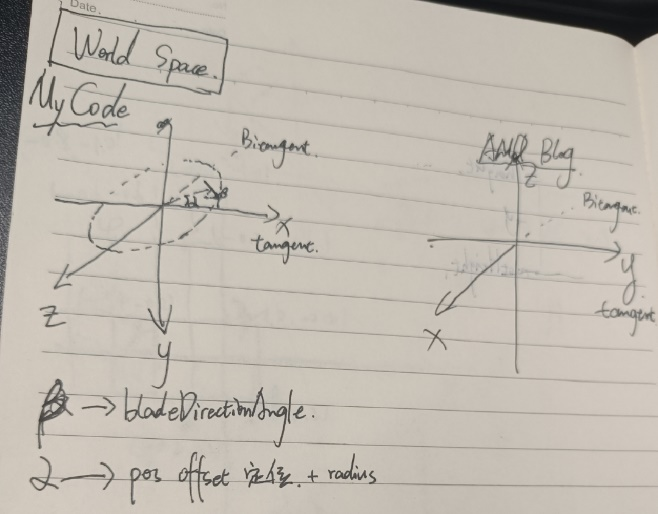 Date.
World Space.
My Code
Bitangent.
x
tangent.
z
y
AMD Blog
z
Bitangent.
y
tangent
x
β → bladeDirectionAngle.
α → pos offset 定位. + radius